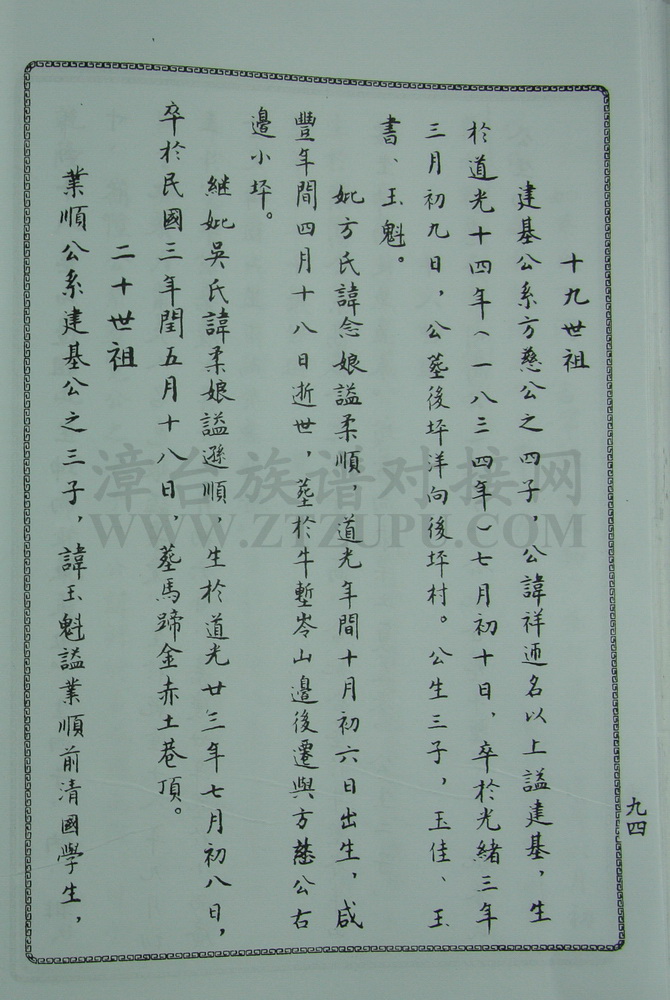 十九世祖
建基公系方慈公之四子，公諱祥迊名以上謚建基，生
於道光十四年（一八三四年）七月初十日，卒於光緒三年
三月初九日，公墓後坪洋向後坪村。公生三子，玉佳、玉
書、玉魁。
妣方氏諱念娘謚柔順，道光年間十月初六日出生，咸
豐年間四月十八日逝世，墓於牛塹岺山邉後遷與方慈公右
邉小坪。
継妣吳氏諱柔娘謚遜順，生於道光廿三年七月初八日，
卒於民國三年閏五月十八日，墓馬蹄金赤土巷頂。
二十世祖
業順公系建基公之三子，諱玉魁謚業順前清國學生，
九四
漳台族谱对接网
WWW.ZTZUPU.COM